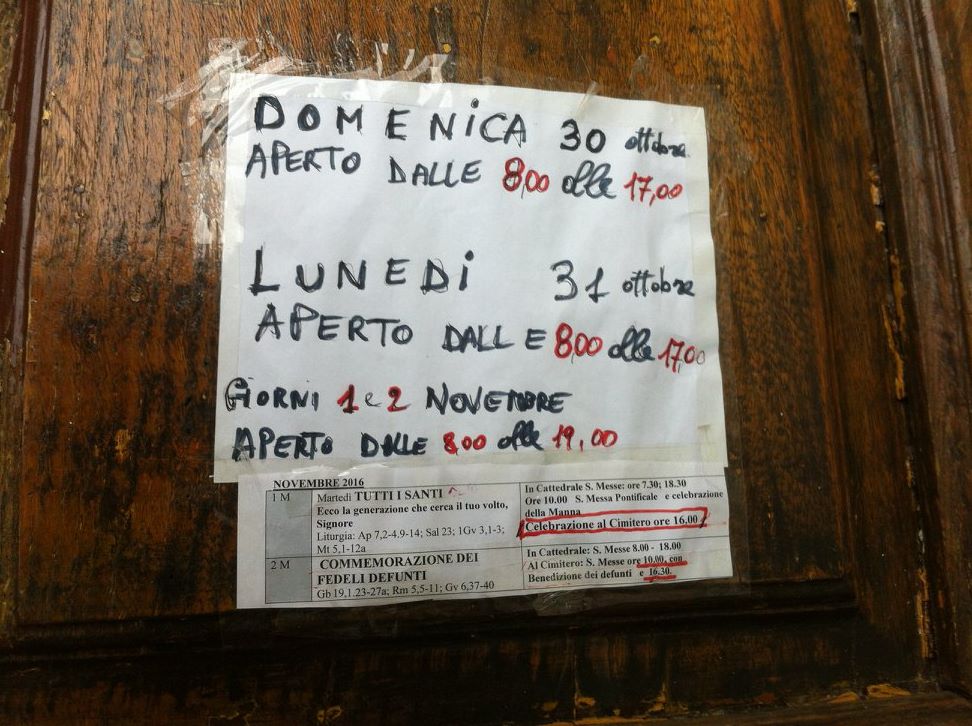 DOMENICA 30 ottobre
APERTO DALLE 8,00 alle 17,00
LUNEDì 31 ottobre
APERTO DALLE 8,00 alle 17,00
GIORNI 1 e 2 NOVEMBRE
APERTO DALLE 8,00 alle 19,00
NOVEMBRE 2016
1 M
Martedì TUTTI I SANTI
Ecco la generazione che cerca il tuo volto,
Signore
Liturgia: Ap 7,2-4.9-14; Sal 23; 1Gv 3,1-3;
Mt 5,1-12a
In Cattedrale S. Messe: ore 7.30; 18.30
Ore 10.00 S. Messa Pontificale e celebrazione
della Manna
Celebrazione al Cimitero ore 16,00
2 M
COMMEMORAZIONE DEI
FEDELI DEFUNTI
Gb 19,1.23-27a; Rm 5,5-11; Gv 6,37-40
In Cattedrale: S. Messe 8.00 - 18.00
Al Cimitero: S. Messe ore 10.00, con
Benedizione dei defunti e 16.30.